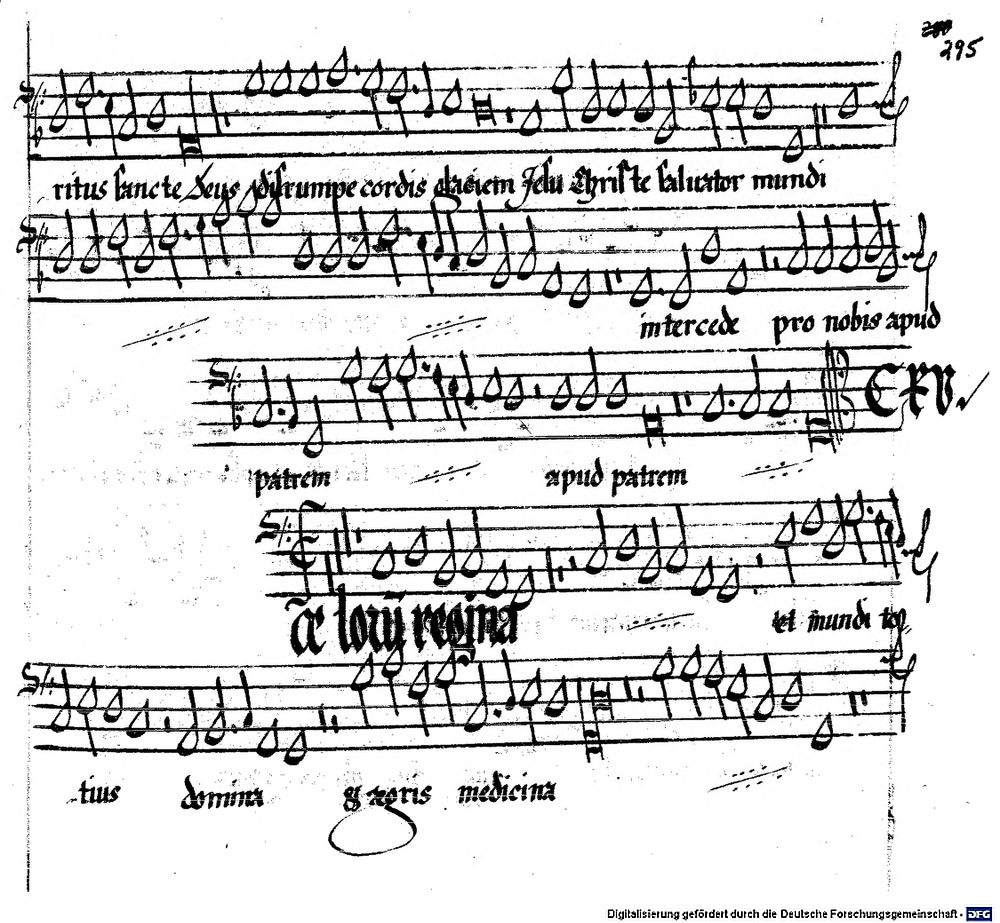 295
ritus sancte Deus disrumpe cordis glaciem Jesu Christe saluator mundi
intercede pro nobis apud
patrem apud patrem
et mundi
tius domina & egris medicina
Digitalisierung gefördert durch die Deutsche Forschungsgemeinschaft - DFG